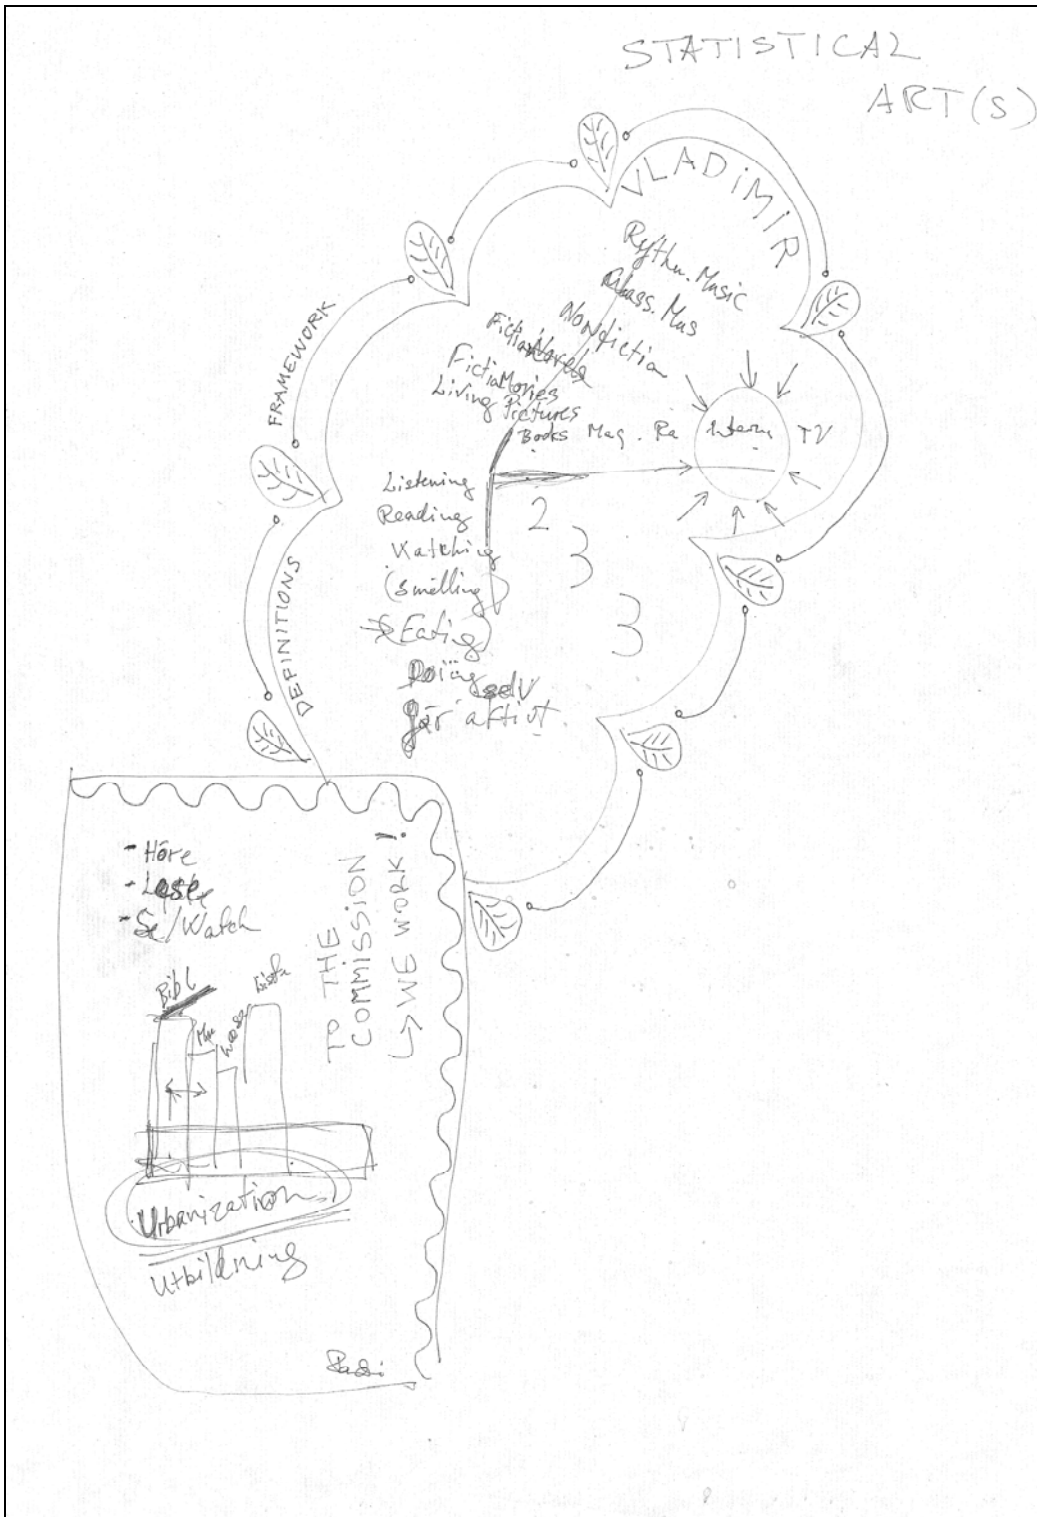 STATISTICAL
ART(S)
VLADiMiR
Rythm. Music
Class. Mus
Nonfiction
Fiction
Fiction Movies
Living Pictures
Books Mag. Ra Intern TV
FRAMEWORK
DEFINITIONS
Listening
Reading
Watching
(Smelling)
Eating)
Doing
selv
aktivt
2
3
3
- Höre
- Lese
- Se/Watch
TO THE
COMMISSION
↳ WE WORK!
Bibl
Urbanization
Utbildning